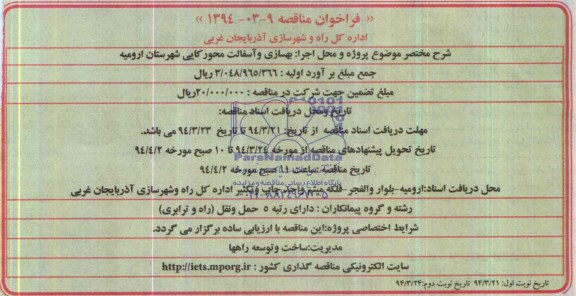 « فراخوان مناقصه ۹-۰۳- ۱۳۹۴ »
اداره کل راه و شهرسازی آذربایجان غربی
شرح مختصر موضوع پروژه و محل اجرا: بهسازی وآسفالت محورکابی شهرستان ارومیه
جمع مبلغ بر آورد اولیه : ۳/۰۴۸/۹۶۵/۳۶۶ ریال
مبلغ تضمین جهت شرکت در مناقصه : ۲۰/۰۰۰/۰۰۰ریال
تاریخ ومحل دریافت اسناد مناقصه:
مهلت دریافت اسناد مناقصه از تاریخ: ۹۴/۳/۲۱ تا تاریخ ۹۴/۳/۲۳ می باشد.
تاریخ تحویل پیشنهادهای مناقصه از مورخه ۹۴/۳/۲۴ تا ۱۰ صبح مورخه ۹۴/۴/۲
ParsNamadData
تاریخ مناقصه: ساعت ۱۱ صبح مورخه ۹۴/۴/۲
پایگاه اطلاع رسانی مناقصه و مزایده
محل دریافت اسناد:ارومیه-بلوار والفجر- فلکه میثم واحد چاپ وتکثیر اداره کل راه وشهرسازی آذربایجان غربی
رشته و گروه پیمانکاران : دارای رتبه ۵ حمل ونقل (راه و ترابری)
شرایط اختصاصی پروژه:این مناقصه با ارزیابی ساده برگزار می گردد.
مدیریت:ساخت وتوسعه راهها
سایت الکترونیکی مناقصه گذاری کشور : http://iets.mporg.ir
تاریخ نوبت اول: ۹۴/۳/۲۱ تاریخ نوبت دوم:۹۴/۳/۲۴